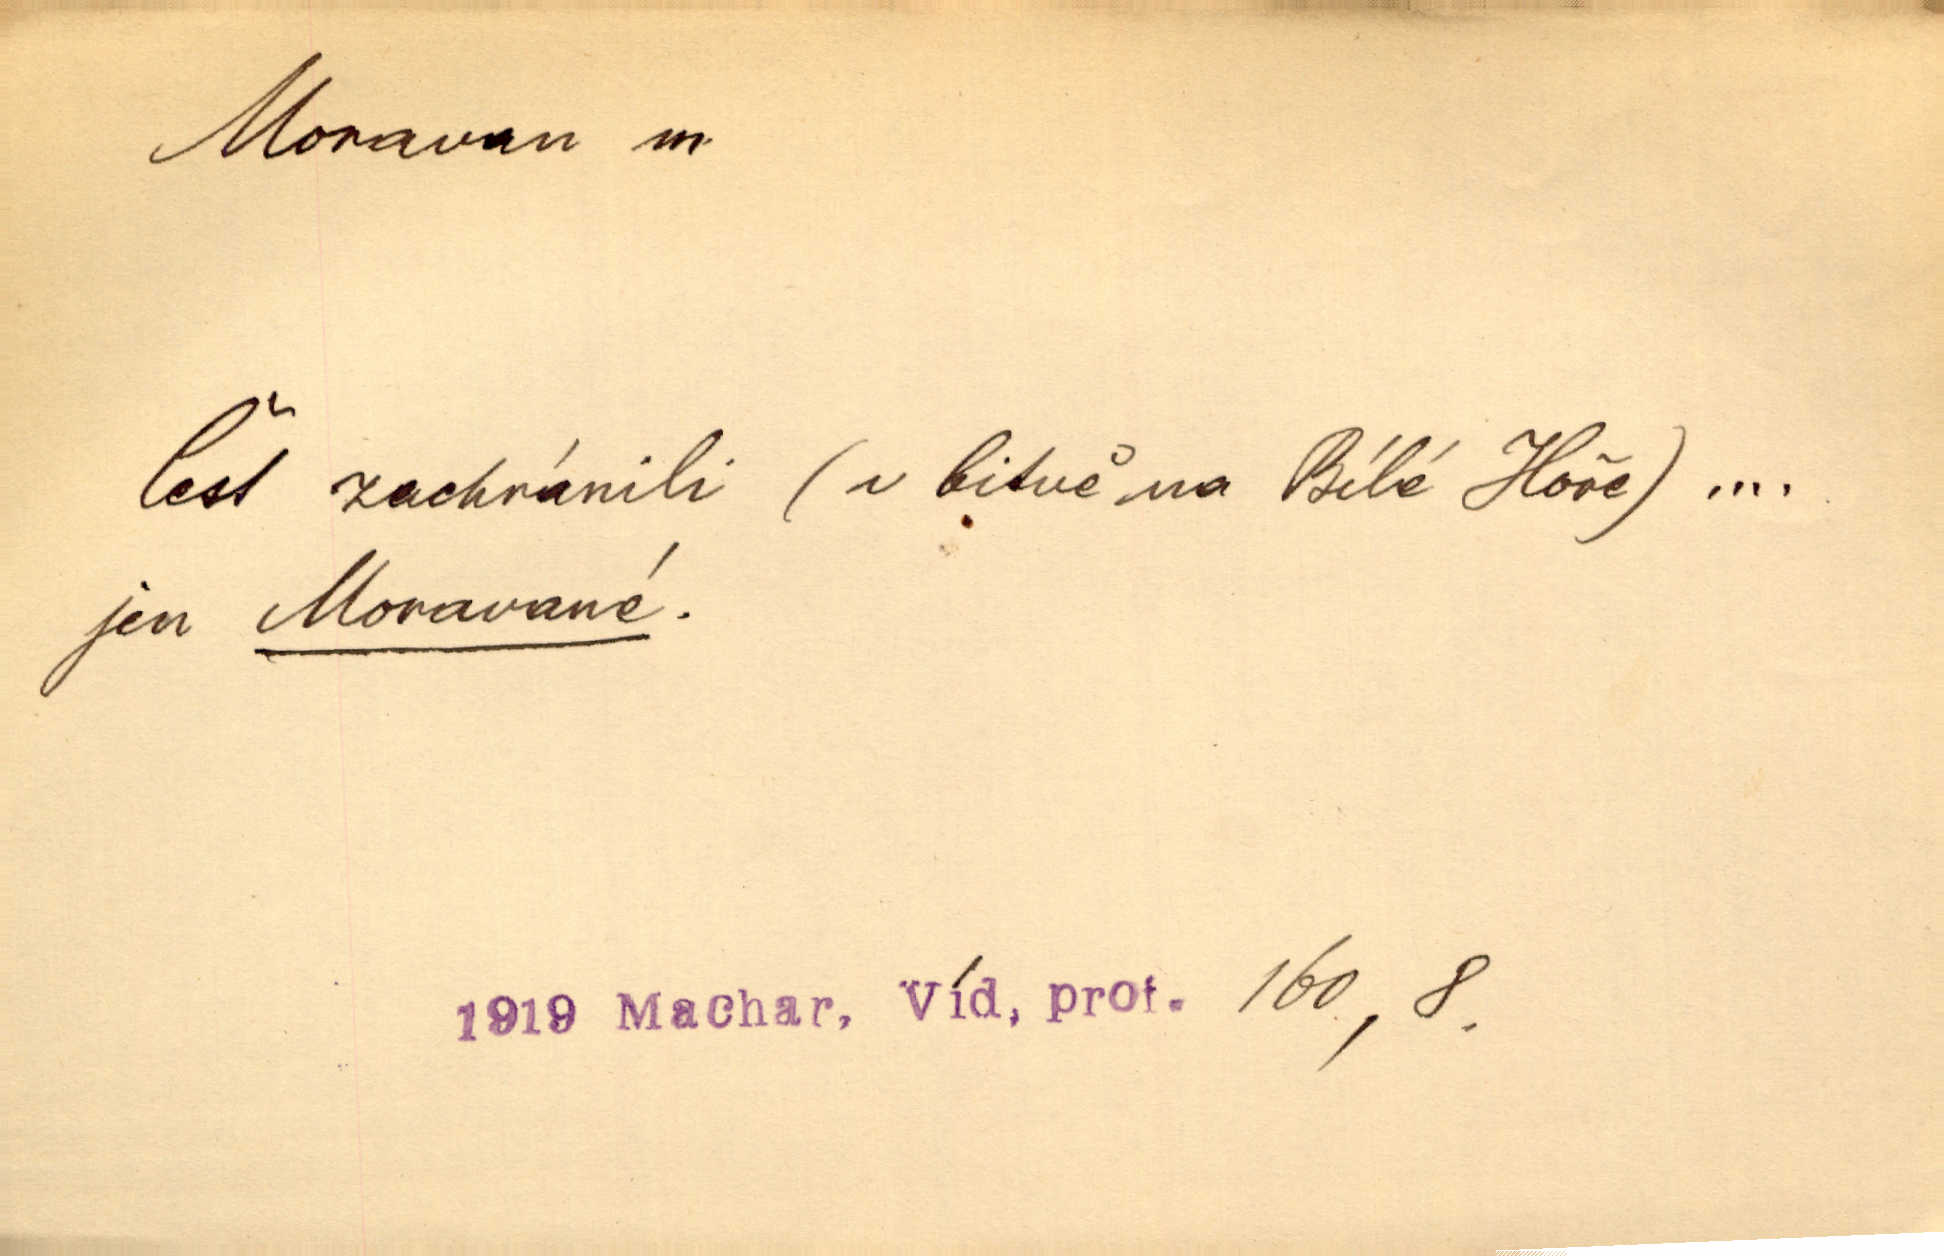 Moravan m.
Čest zachránili (v bitvě na Bílé Hoře) ....
jen Moravané.
1919 Machar, Víd, prot. 160, 8.